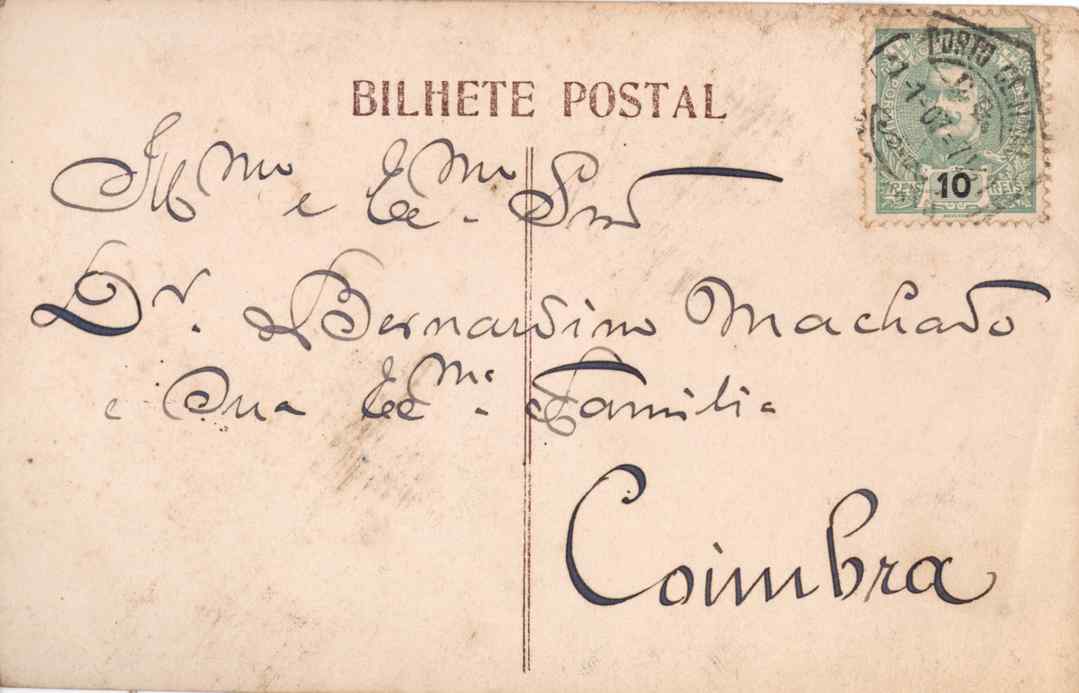 BILHETE POSTAL
PORTO CENTRAL
1-07
10
REIS REIS
Ill.mo e Ex.mo Snr
Dr. Bernardino Machado
e Sua Ex.ma Familia
Coimbra